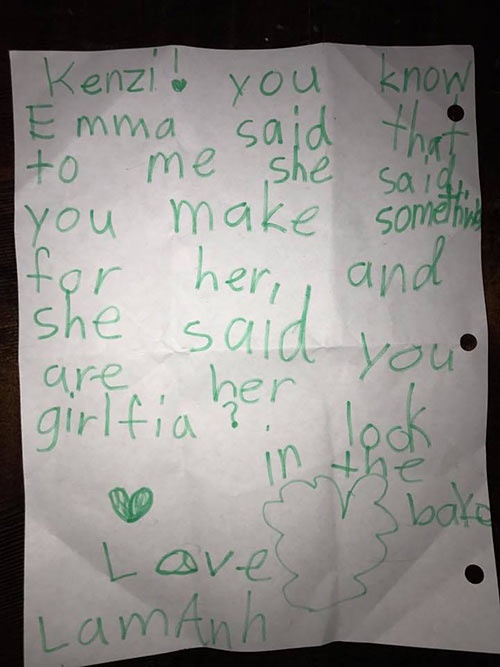 Kenzi! you know
Emma said that
to me she said,
you make something
for her, and
she said you
are her
girlfia?
look
in the
Love
LamAnh